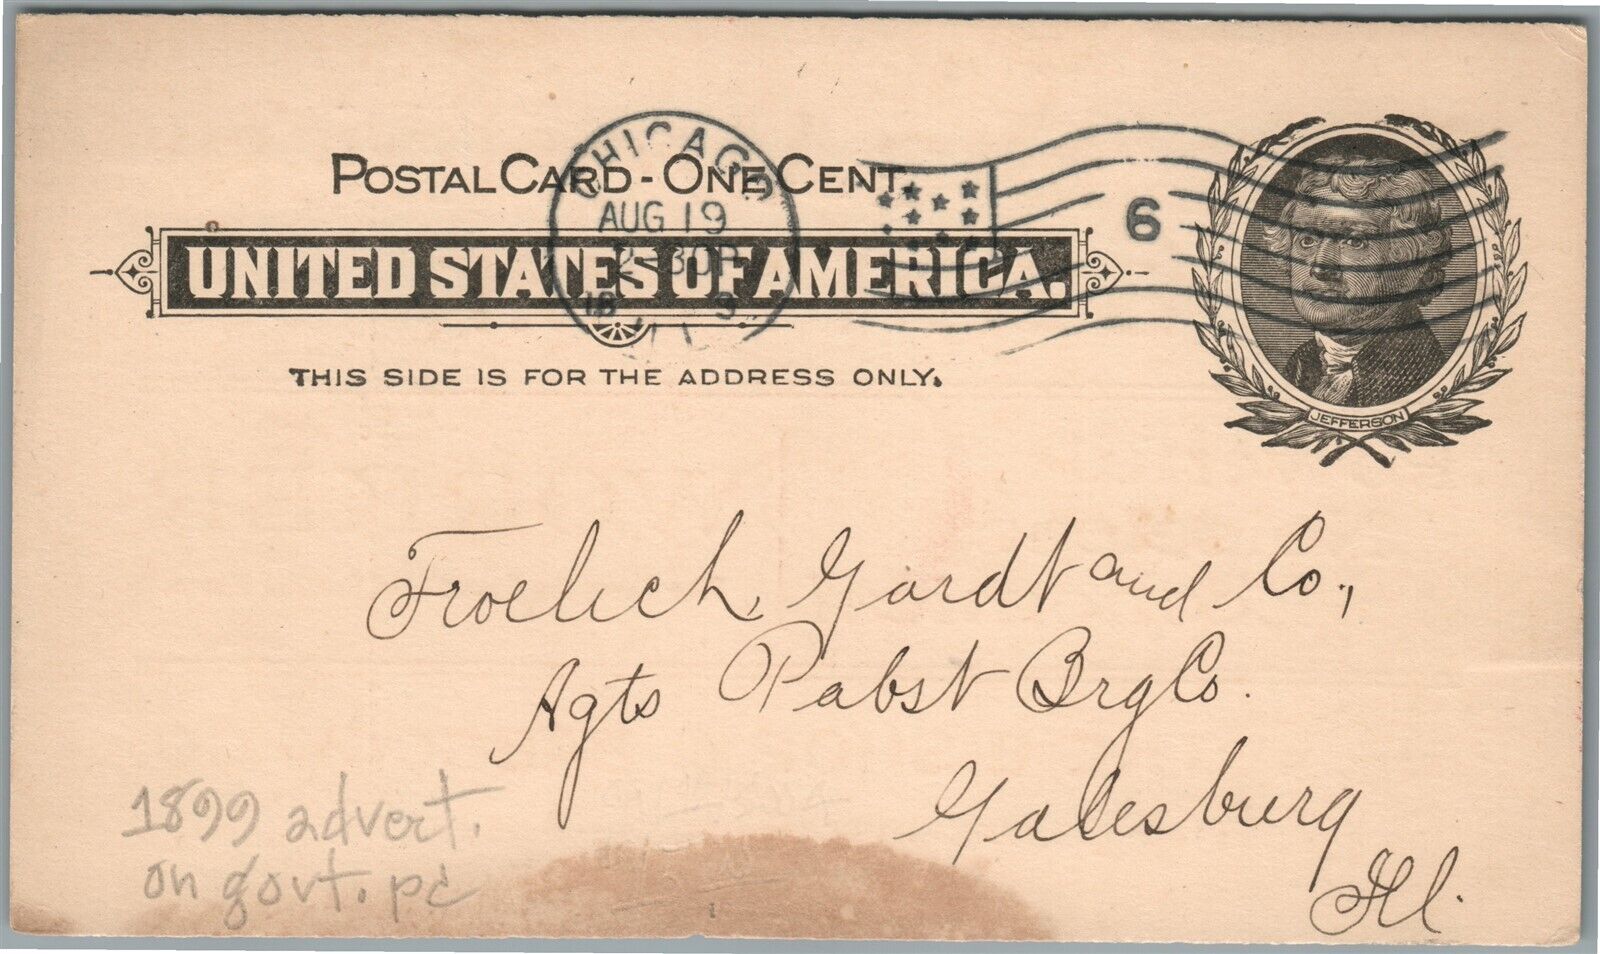 CHICAGO
POSTAL CARD - ONE CENT.
AUG 19
6
2-30P
UNITED STATES OF AMERICA.
JEFFERSON
THIS SIDE IS FOR THE ADDRESS ONLY.
Froelich, Gardt and Co.,
Agts Pabst Brg Co.
Galesburg
Ill.
1899 advert.
on govt. pc